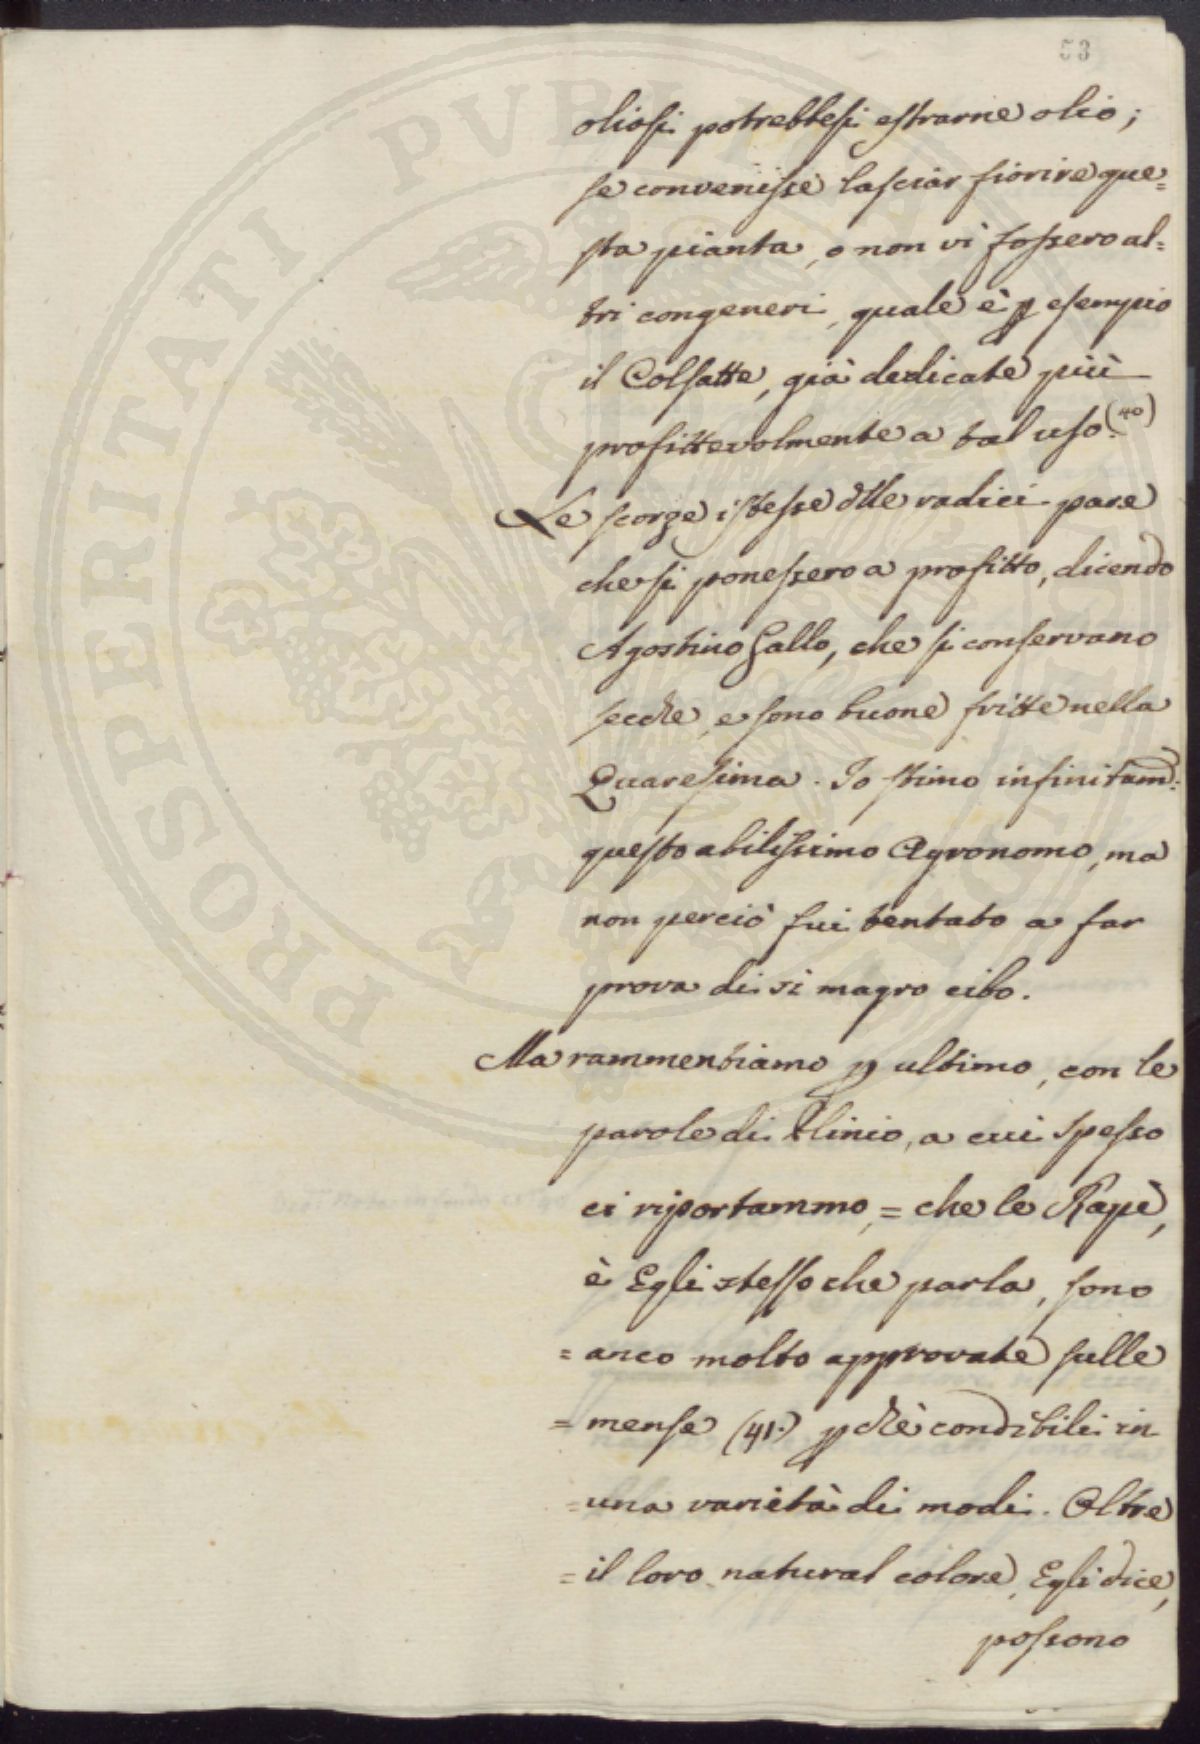 53
oliosi potrebbesi estrarne olio;
se convenisse lasciar fiorire que=
sta pianta, o non vi fossero al=
tri congeneri, quale è p esempio
il Colsatte, già dedicate più
profittevolmente a tal uso.(40)
Le scorze istesse dlle radici pare
che si ponessero a profitto, dicendo
Agostino Gallo, che si conservano
secche, e sono buone fritte nella
Quaresima. Io stimo infinitam:
questo abilissimo Agronomo, ma
non perciò fui tentato a far
prova di si magro cibo.
Ma rammentiamo p ultimo, con le
parole di Plinio, a cui spesso
ci riportammo, = che le Rape,
è Egli stesso che parla, sono
= anco molto approvate sulle
= mense (41.) pchè condibili in
= una varietà di modi. Oltre
= il loro natural colore, Egli dice,
possono
PROSPERITATI PUBLICAE